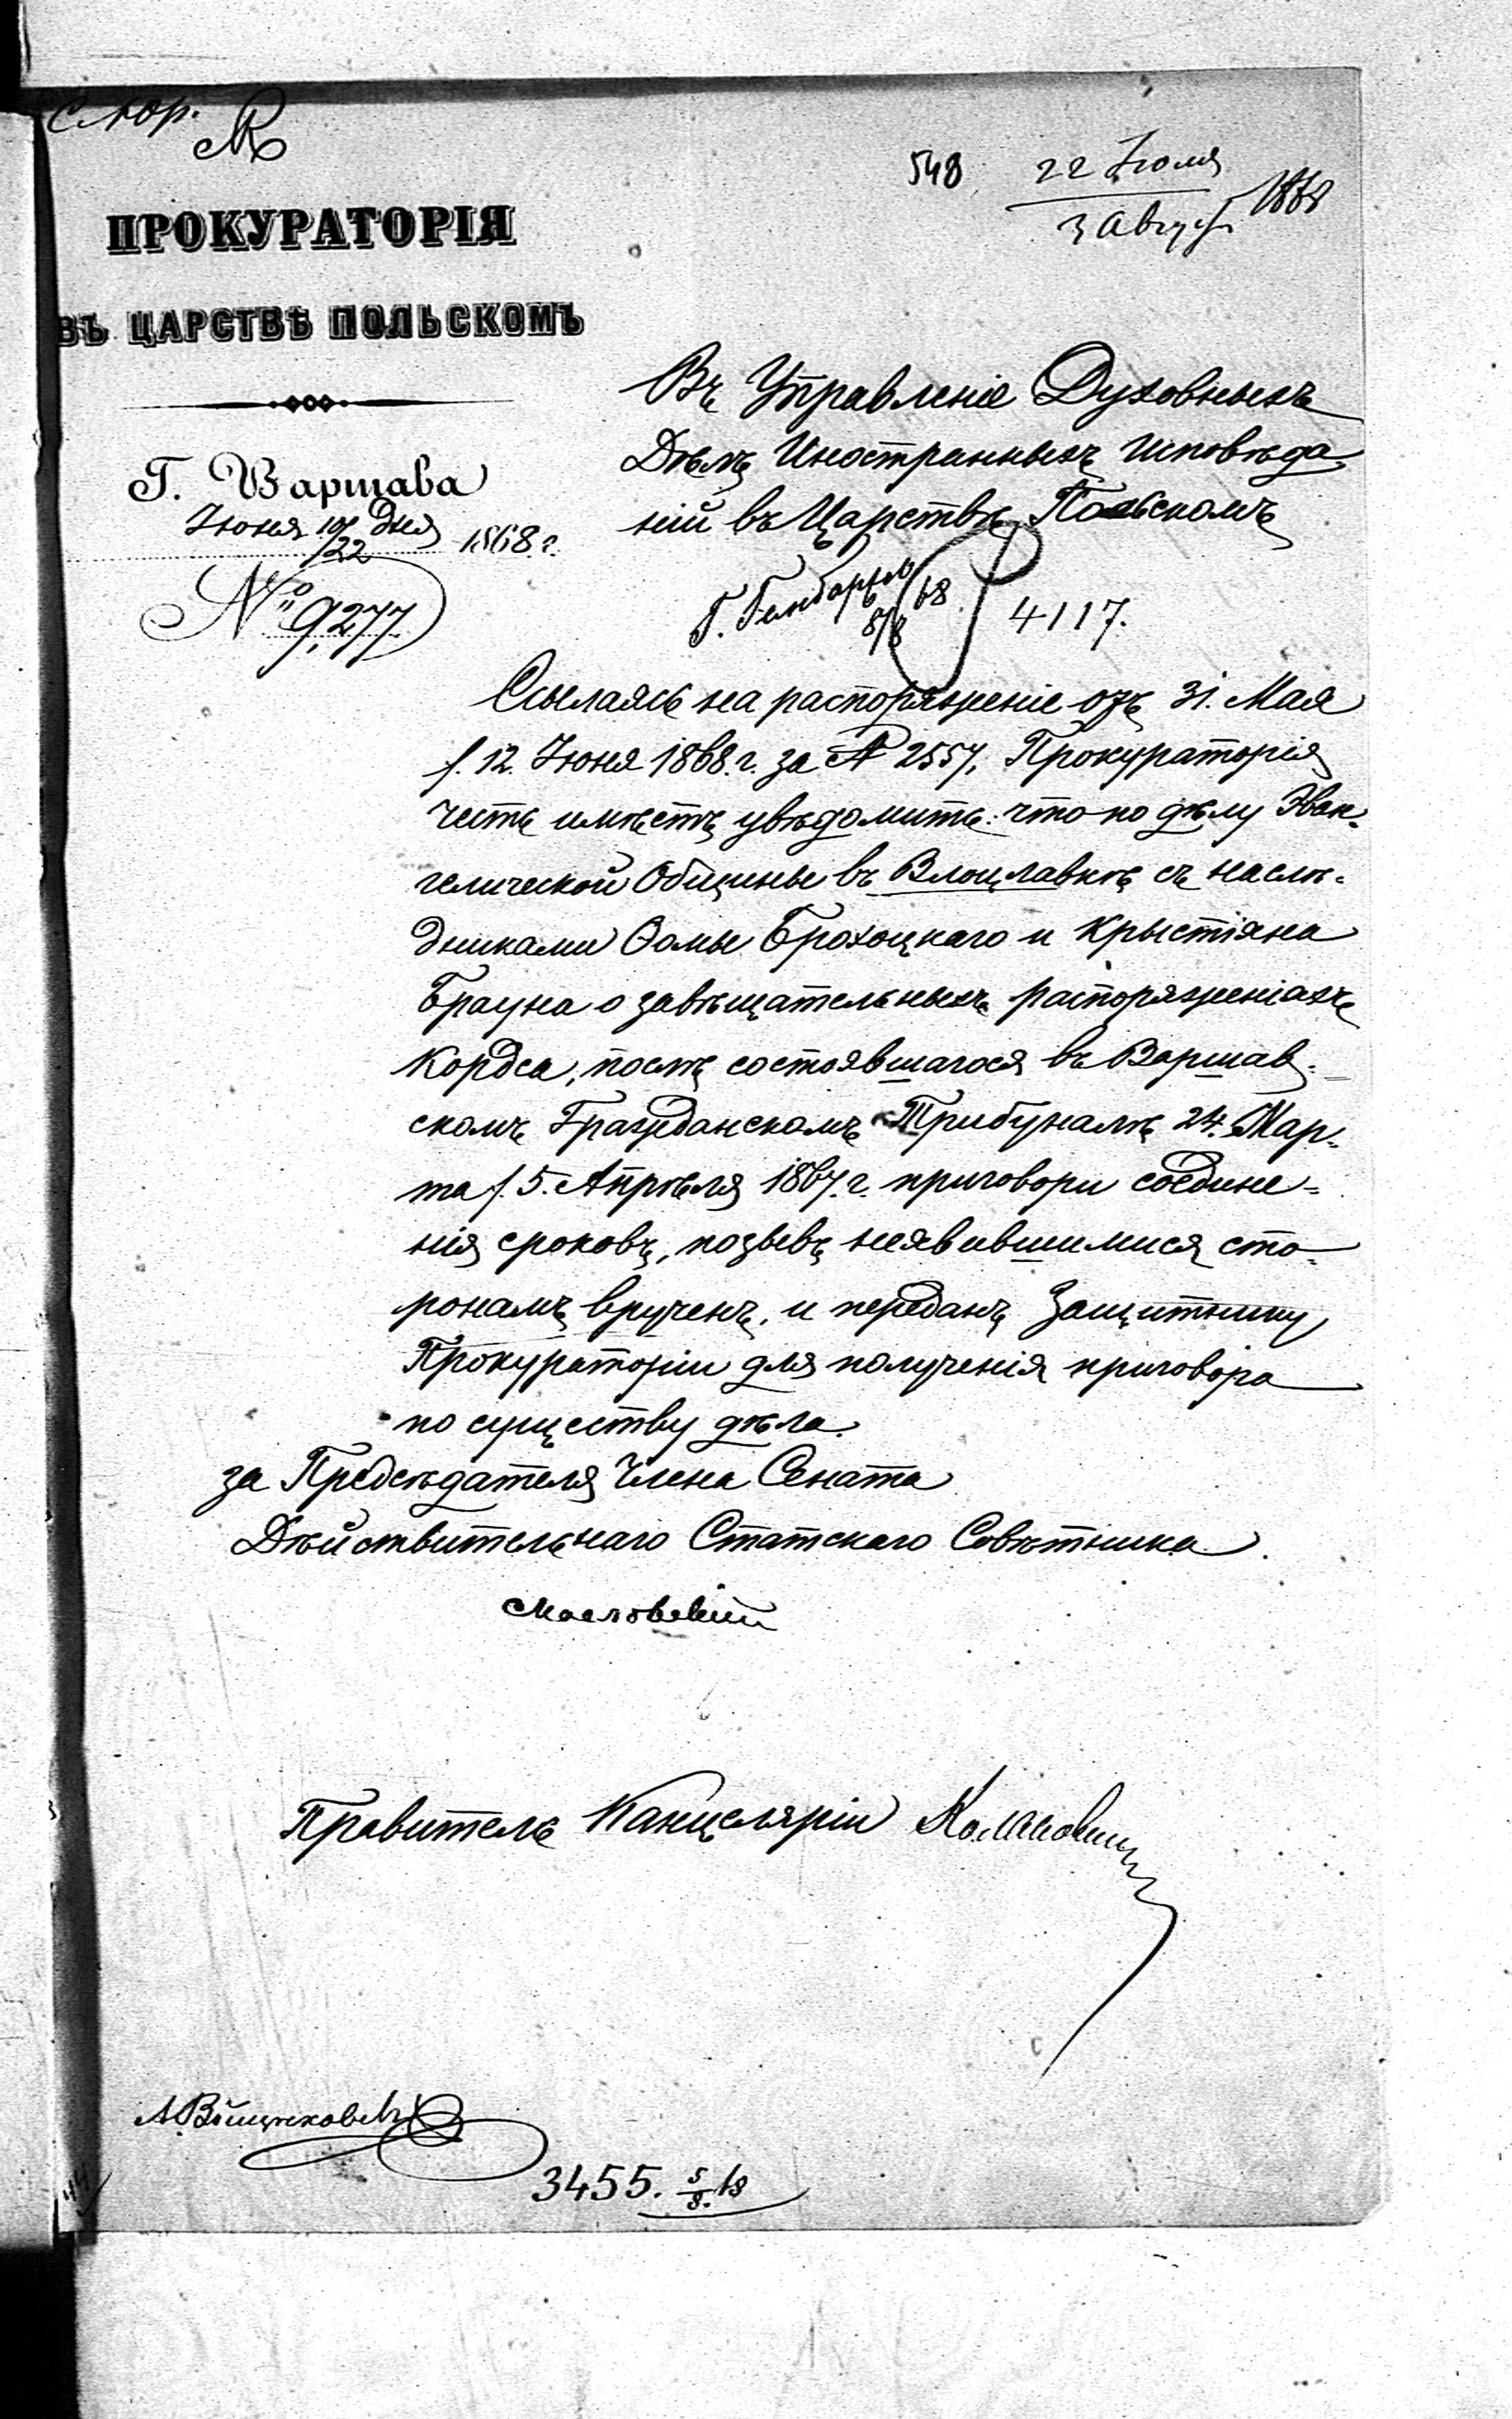 548 22 Іюля
3 Август 1868
ПРОКУРАТОРІЯ
ВЪ ЦАРСТВѢ ПОЛЬСКОМЪ
Въ Управленіе Духовныхъ
Дѣлъ Иностранныхъ Исповѣда
ній въ Царствѣ Польскомъ
Г. Варшава
Іюня 10/22 дня 1868 г.
№ 9277
8/8 68
4117.
Ссылаясь на распоряженіе отъ 31. Мая
/. 12. Іюня 1868. г. за № 2557, Прокураторія
честь имѣетъ увѣдомить: что по дѣлу Эван-
гелической Общины въ Влоцлавкѣ съ наслѣ-
дниками Ѳомы Брохоцкаго и Крыстіяна
Брауна о завѣщательныхъ распоряженіахъ
Кордса, послѣ состоявшагося въ Варшав-
скомъ Гражданскомъ Трибуналѣ 24. Мар-
та /. 5. Апрѣля 1867. г. приговори соедине-
нія сроковъ, позывъ неявившимися сто-
ронамъ врученъ, и переданъ Защитнику
Прокураторіи для полученія приговора
по существу дѣла.
за Предсѣдателя Члена Сената
Дѣйствительнаго Статскаго Совѣтника
Правитель Канцеляріи
3455. 5/8. 68